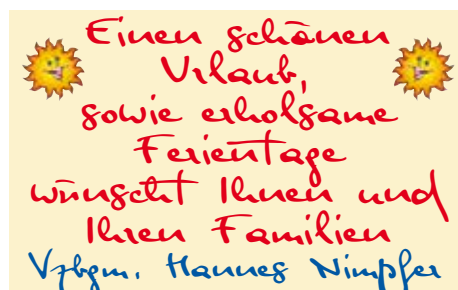 Einen schönen
Urlaub,
sowie erholsame
Ferientage
wünscht Ihnen und
Ihren Familien
Vzbgm. Hannes Nimpfer